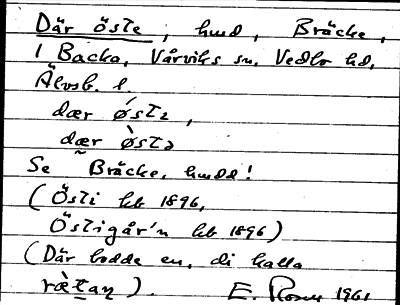 Där öste, hmd, Bräcke,
1 Backa, Vårviks sn, Vedbo hd,
Älvsb. l.
dær ǿst₂,
dær ø̀stɔ
Se Bräcke, hmdd!
(Östi hb 1896,
Östigår'n hb 1896)
(Där bodde en, di kalla
ræ̀taɲ). E. Rosen 1961